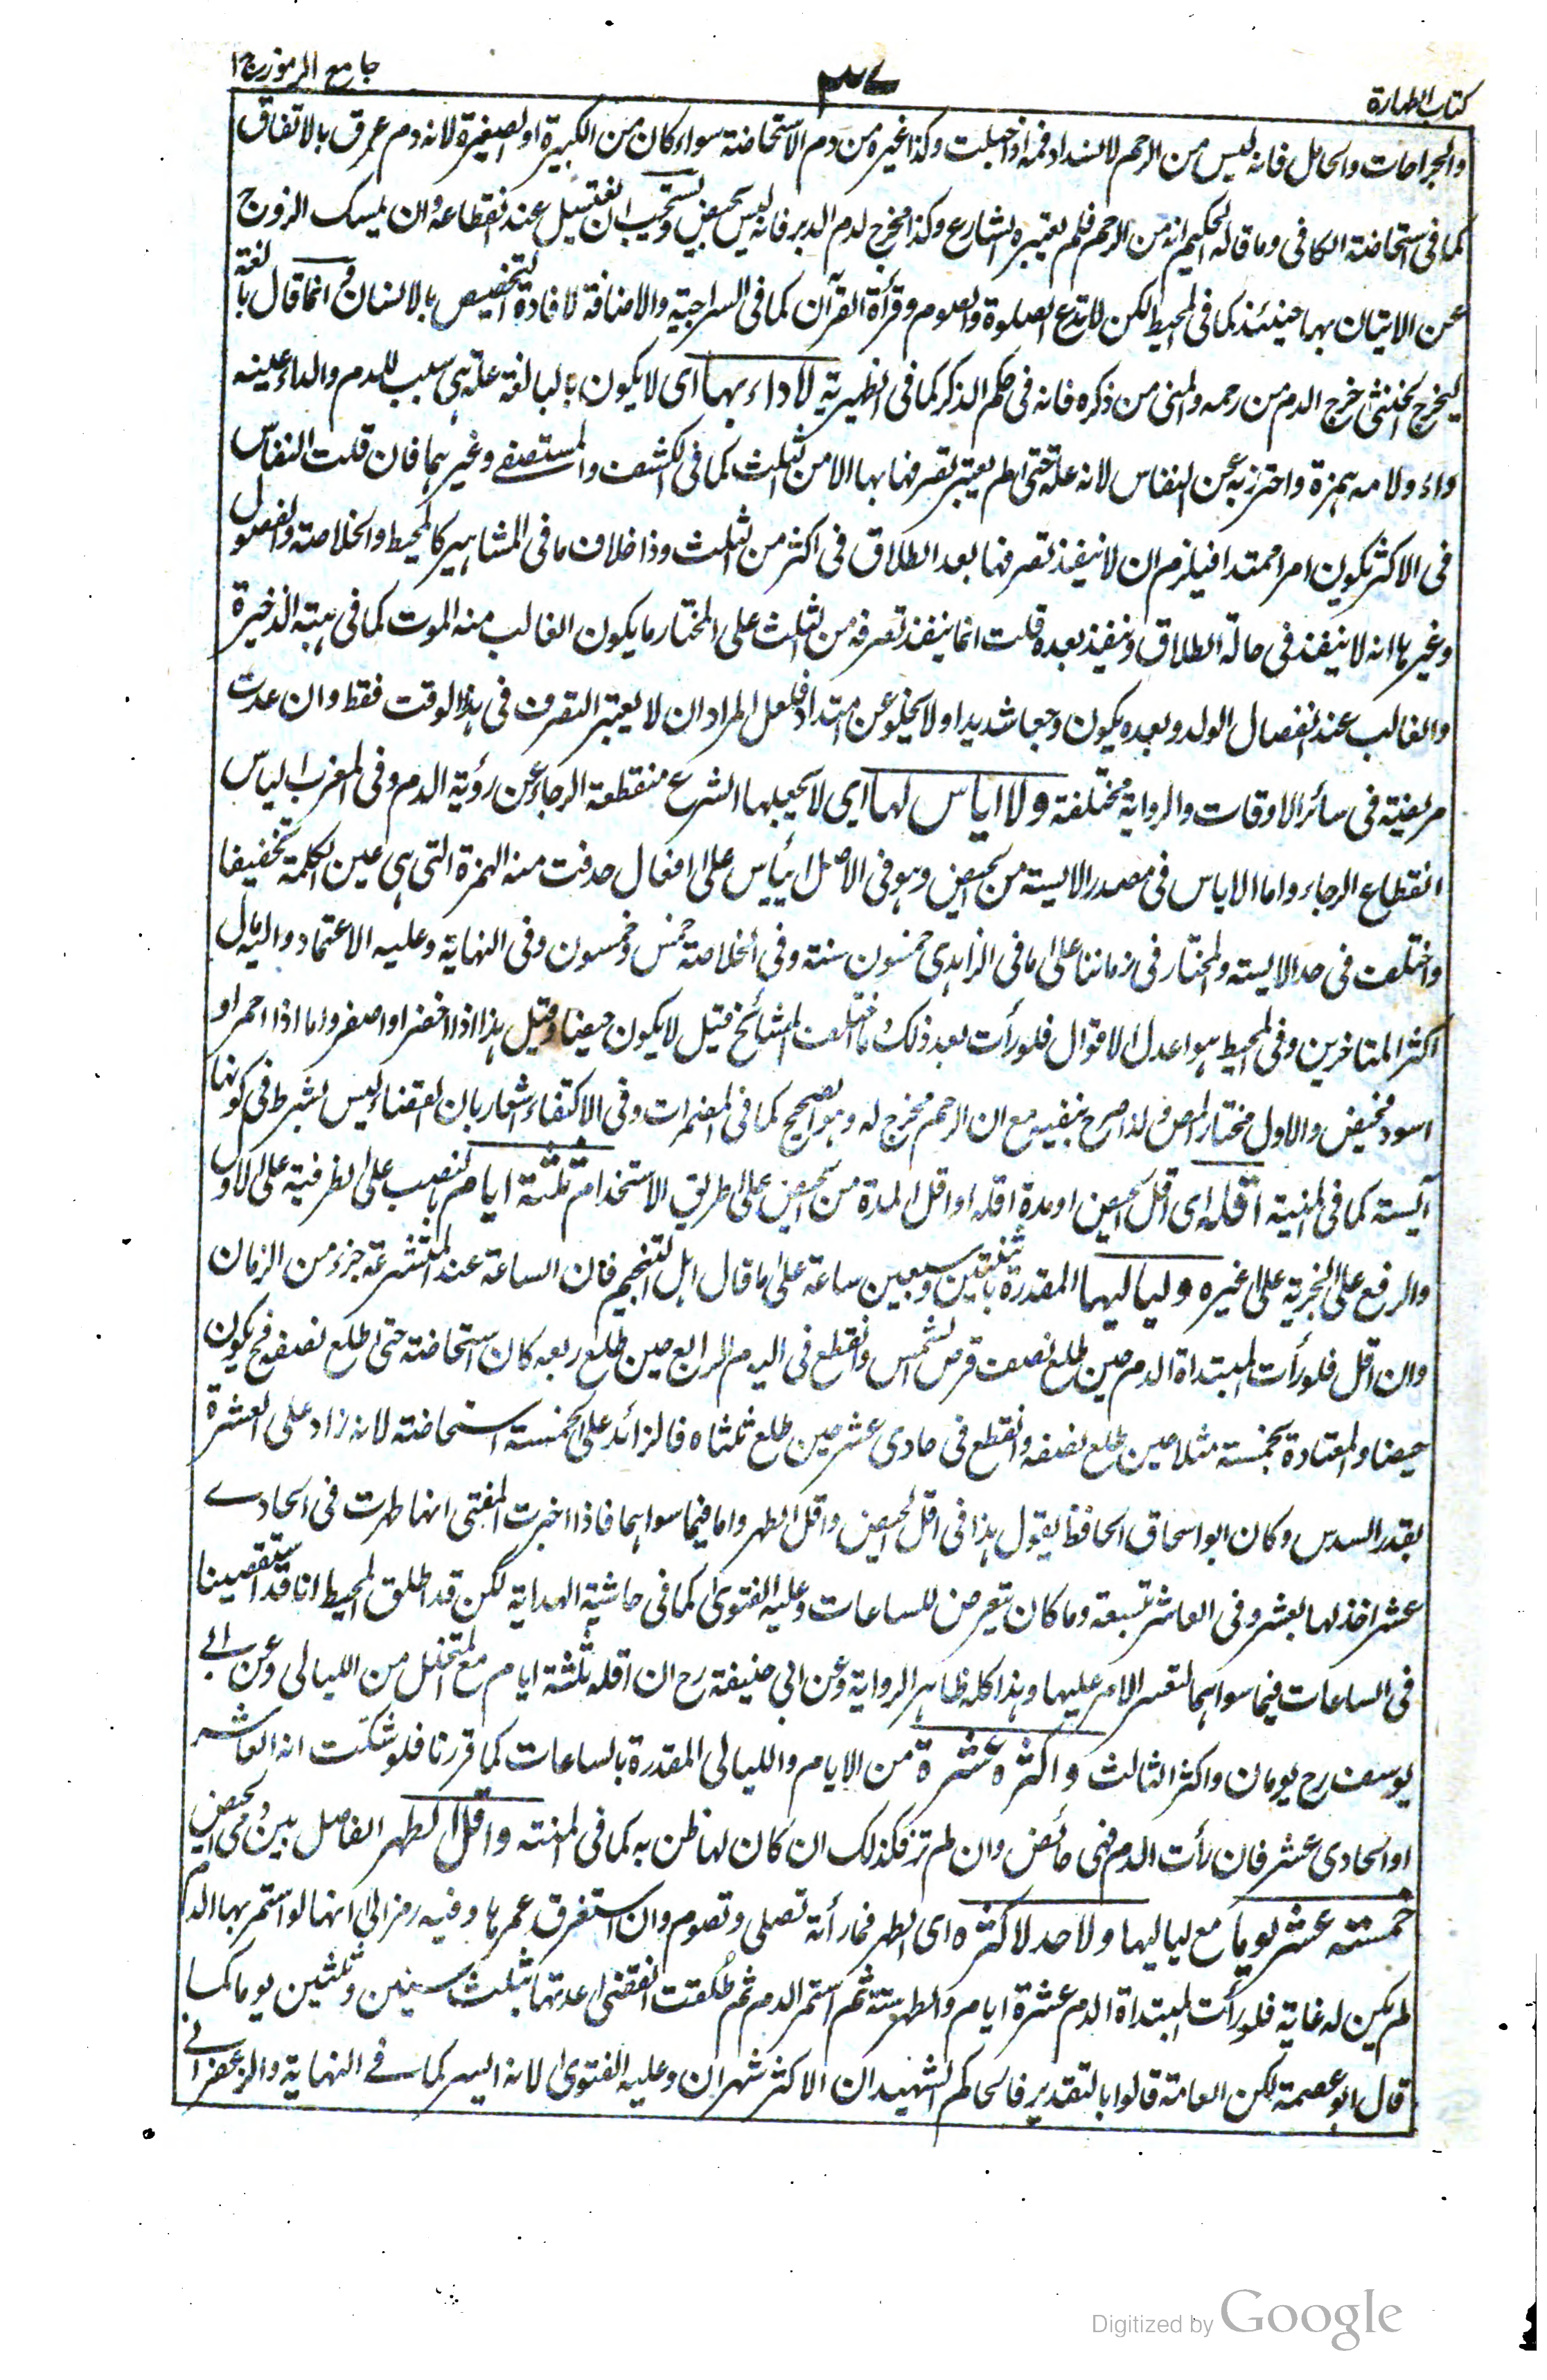 كتاب الطهارة
٣٧
جامع الرموز ج١
والجراحات والحامل فانه ليس من الرحم لانسداد فمه اذا حبلت وكذا غيره من دم الاستحاضة سواء كان من الكبيرة او الصغيرة لانه دم عرق بالاتفاق
كما فى استحاضة الكافى وما قاله الحكيم انه من الرحم فلم يعتبره الشارع وكذا مخرج لدم الدبر فانه ليس بحيض ويستحب ان تغتسل عند انقطاعه وان يمسك الزوج
عن الاتيان بها حينئذ كما فى المحيط لكن لا تدع الصلوة والصوم وقرأة القرآن كما فى السراجية والاضافة لافادة التخصيص بالانسان وانما قال بالغة
ليخرج الخنثى خرج الدم من رحمه والمنى من ذكره فانه فى حكم الذكر كما فى الظهيرية لا داء بها اى لا يكون بالبالغة علة هى سبب للدم والداء عينه
واو ولامه همزة واحترز به عن النفاس لانه علة حتى لم يعتبر تصرفها بها الا من الثلث كما فى الكشف والمستصفے وغيرهما فان قلت النفاس
فى الاكثر يكون امرا ممتدا فيلزم ان لا ينفذ تصرفها بعد الطلاق فى اكثر من الثلث وذا خلاف ما فى المشاهير كالمحيط والخلاصة والفصول
وغيرها انه لا ينفذ فى حالة الطلاق وينفذ بعده قلت انما ينفذ تصرفه من الثلث على المختار ما يكون الغالب منه الموت كما فى هبة الذخيرة
والغالب عند انفصال الولد وبعده يكون وجعا شديدا ولا يخلو عن امتداد فلعل المراد ان لا يعتبر التصرف فى هذا الوقت فقط وان عدت
مريضة فى سائر الاوقات والرواية مختلفة ولا اياس لها اى لا يجعلها الشرع منقطعة الرجاء عن رؤية الدم وفى المغرب الياس
انقطاع الرجاء واما الاياس فى مصدر الايسة من الحيض وهو فى الاصل ايئاس على افعال حذفت منه الهمزة التى هى عين الكلمة تخفيفا
واختلف فى حد الايسة والمختار فى زماننا على ما فى الزاهدى خمسون سنة وفى الخلاصة خمس وخمسون وفى النهاية وعليه الاعتماد واليه مال
اكثر المتاخرين وفى المحيط هو اعدل الاقوال فلو رأت بعد ذلك ما اختلف المشائخ قيل لا يكون حيضا وقيل هذا اذا اخضر او اصفر واما اذا احمر او
اسود فحيض والاول مختار المص فلذا صرح بنفيه مع ان الرحم مخرج له وهو الصحيح كما فى المضمرات وفى الاكتفاء اشعار بان القضاء ليس بشرط فى كونها
آيسة كما فى المنية اقله اى اقل الحيض او مدة اقله او اقل المدة من الحيض على طريق الاستخدام ثلثة ايام بالنصب على الظرفية على الاول
والرفع على الخبرية على غيره ولياليها المقدرة باثنتين وسبعين ساعة على ما قال اهل التنجيم فان الساعة عند المتشرعة جزء من الزمان
وان اقل فلو رأت المبتدأة الدم حين طلع نصف قرص الشمس وانقطع فى اليوم الرابع حين طلع ربعه كان استحاضة حتى اطلع نصفه فح يكون
حيضا والمعتادة بخمسة مثلا حين طلع نصفه وانقطع فى حادى عشر حين طلع ثلثاه فالزائد على الخمسة استحاضة لانه زاد على العشرة
بقدر السدس وكان ابو اسحاق الحافظ يقول هذا فى اقل الحيض واقل الطهر واما فيما سواهما فاذا اخبرت المفتى انها طهرت فى الحادے
عشر اخذ لها بعشر وفى العاشر بتسعة وما كان يتعرض للساعات وعليه الفتوى كما فى حاشية الهداية لكن قد اطلق المحيط انا قد استقصينا
فى الساعات فيما سواهما لتعسر الامر عليها وهذا كله ظاهر الرواية وعن ابى حنيفة رح ان اقله ثلثة ايام مع المتخلل من الليالى وعن ابے
يوسف رح يومان واكثر الثالث واكثره عشرة من الايام والليالى المقدرة بالساعات كما قررنا فلو شكت انه العاشر
او الحادى عشر فان رأت الدم فهى حائض وان لم تر فكذلك ان كان لها ظن به كما فى المنية واقل الطهر الفاصل بين دمى الحيض
خمسة عشر يوما مع لياليها ولا حد لاكثره اى الطهر فما رأته تصلى وتصوم وان استغرق عمرها وفيه رمز الى انها لو استمر بها الدم
لم يكن له غاية فلو رأت المبتدأة الدم عشرة ايام والطهر ستة ثم استمر الدم ثم طلقت انقضى عدتها بثلث سنين وثلثين يوما كما
قال ابو عصمة لكن العامة قالوا بالتقدير فالحاكم الشهيد ان الاكثر شهران وعليه الفتوى لانه ايسر كما فے النهاية والزعفرانے
Digitized by Google